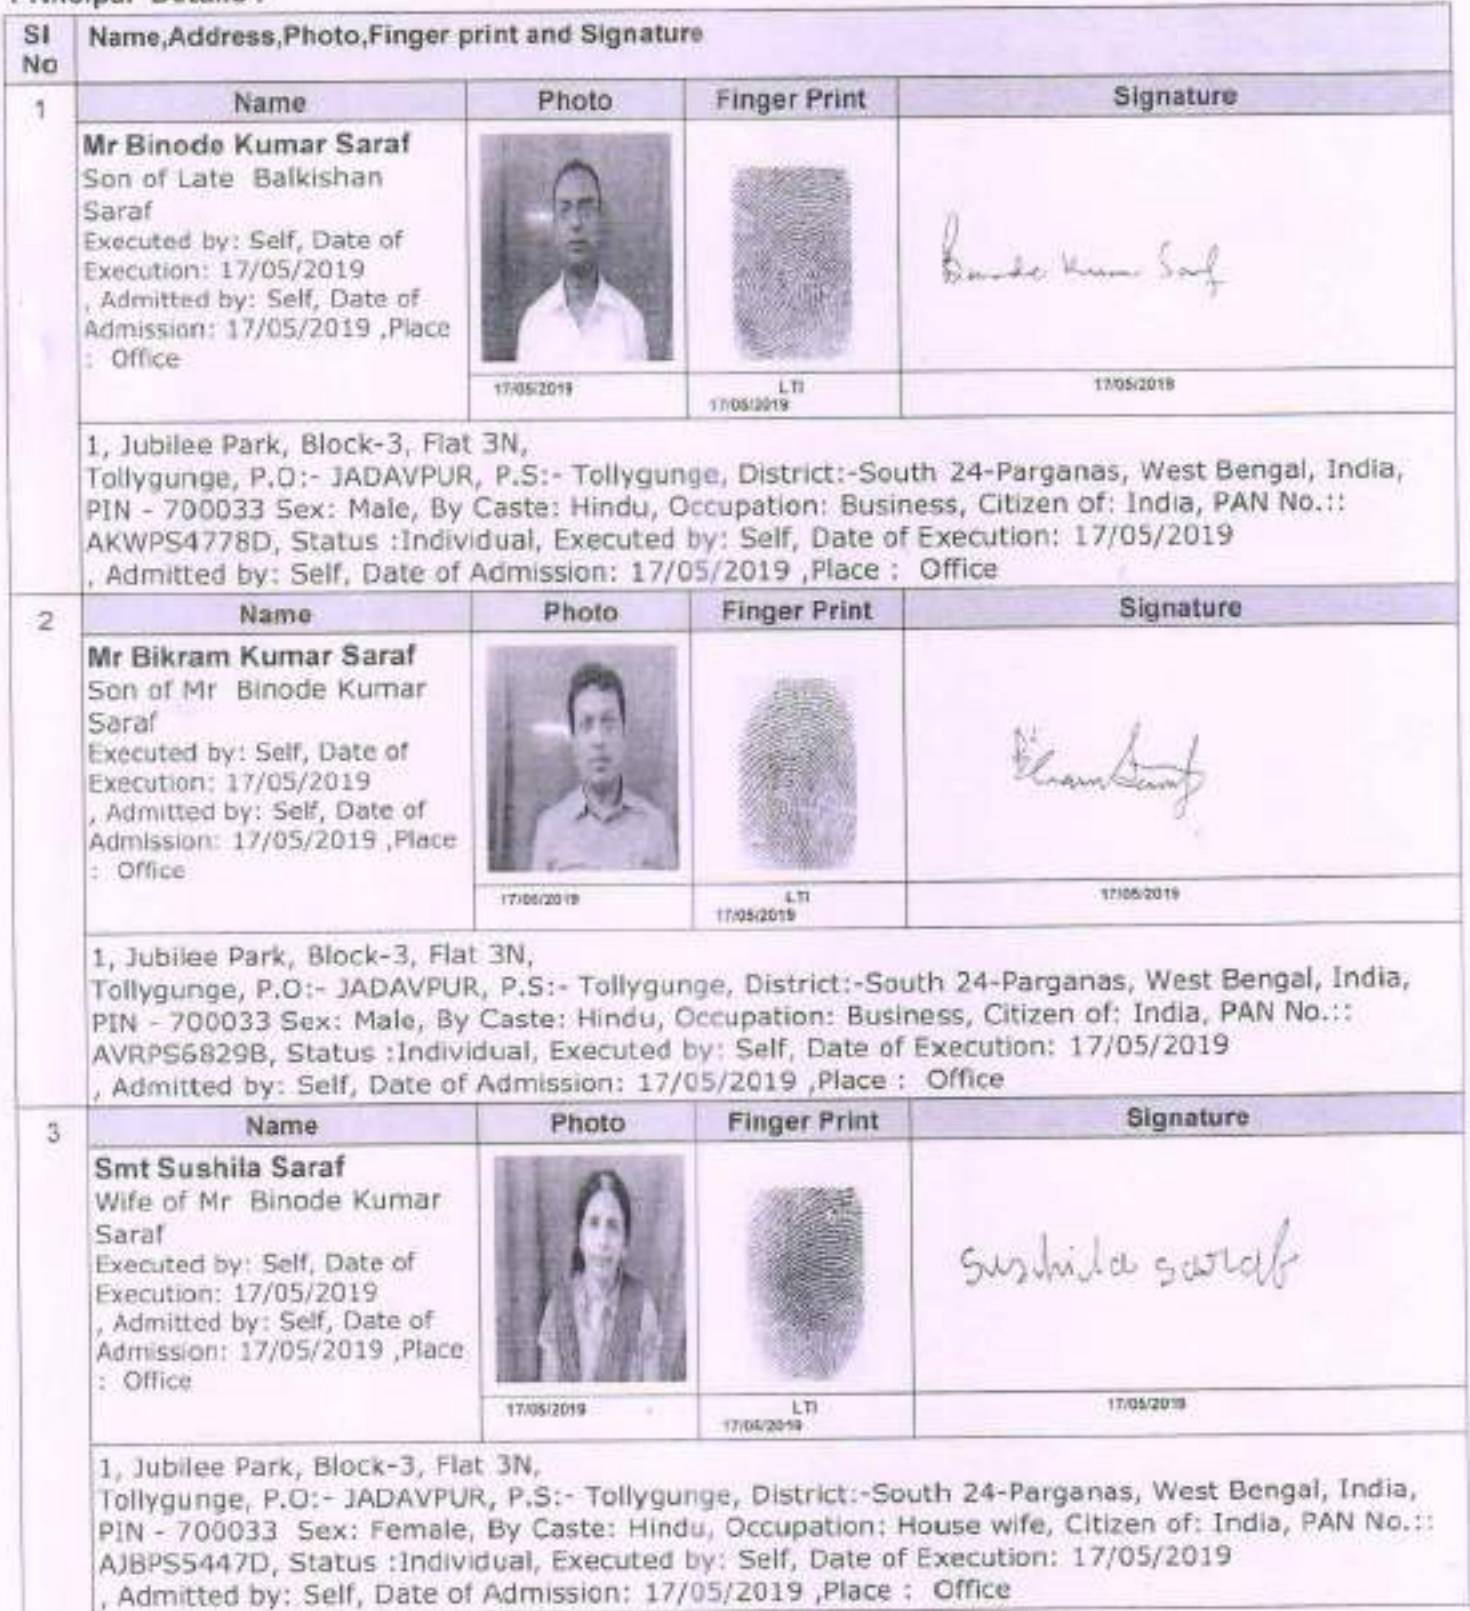 Principal Details :
Sl No
Name,Address,Photo,Finger print and Signature
1
Name Photo Finger Print Signature
Mr Binode Kumar Saraf
Son of Late Balkishan
Saraf
Executed by: Self, Date of
Execution: 17/05/2019
, Admitted by: Self, Date of
Admission: 17/05/2019 ,Place
: Office
Binode Kumar Saraf
17/05/2019
LTI
17/05/2019
17/05/2019
1, Jubilee Park, Block-3, Flat 3N,
Tollygunge, P.O:- JADAVPUR, P.S:- Tollygunge, District:-South 24-Parganas, West Bengal, India,
PIN - 700033 Sex: Male, By Caste: Hindu, Occupation: Business, Citizen of: India, PAN No.::
AKWPS4778D, Status :Individual, Executed by: Self, Date of Execution: 17/05/2019
, Admitted by: Self, Date of Admission: 17/05/2019 ,Place : Office
2
Name Photo Finger Print Signature
Mr Bikram Kumar Saraf
Son of Mr Binode Kumar
Saraf
Executed by: Self, Date of
Execution: 17/05/2019
, Admitted by: Self, Date of
Admission: 17/05/2019 ,Place
: Office
Bikram Saraf
17/05/2019
LTI
17/05/2019
17/05/2019
1, Jubilee Park, Block-3, Flat 3N,
Tollygunge, P.O:- JADAVPUR, P.S:- Tollygunge, District:-South 24-Parganas, West Bengal, India,
PIN - 700033 Sex: Male, By Caste: Hindu, Occupation: Business, Citizen of: India, PAN No.::
AVRPS6829B, Status :Individual, Executed by: Self, Date of Execution: 17/05/2019
, Admitted by: Self, Date of Admission: 17/05/2019 ,Place : Office
3
Name Photo Finger Print Signature
Smt Sushila Saraf
Wife of Mr Binode Kumar
Saraf
Executed by: Self, Date of
Execution: 17/05/2019
, Admitted by: Self, Date of
Admission: 17/05/2019 ,Place
: Office
Sushila saraf
17/05/2019
LTI
17/05/2019
17/05/2019
1, Jubilee Park, Block-3, Flat 3N,
Tollygunge, P.O:- JADAVPUR, P.S:- Tollygunge, District:-South 24-Parganas, West Bengal, India,
PIN - 700033 Sex: Female, By Caste: Hindu, Occupation: House wife, Citizen of: India, PAN No.::
AJBPS5447D, Status :Individual, Executed by: Self, Date of Execution: 17/05/2019
, Admitted by: Self, Date of Admission: 17/05/2019 ,Place : Office